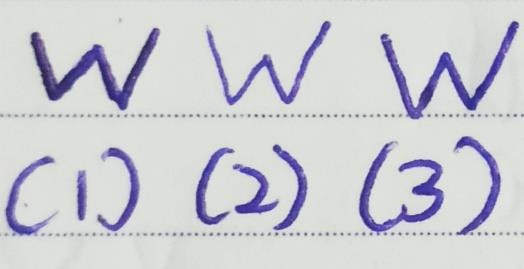 W W W
(1) (2) (3)